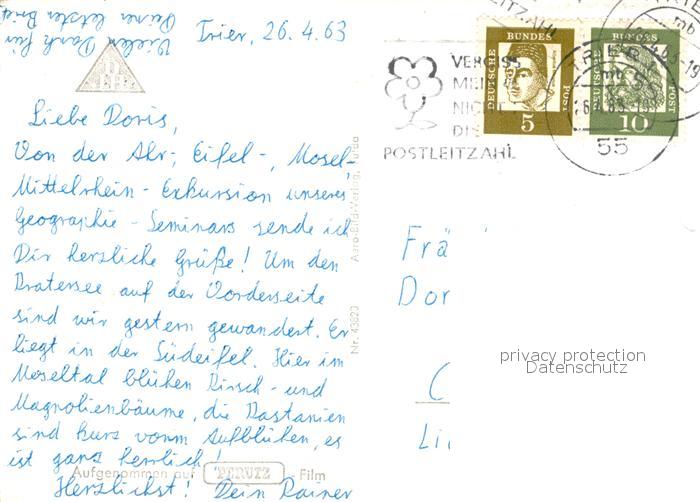 Vielen Dank für
Deinen letzten Brief
Trier, 26.4.63
Liebe Doris,
Von der Ahr-, Eifel-, Mosel-,
Mittelrhein-Exkursion unseres
Geographie-Seminars sende ich
Dir herzliche Grüße! Um den
Kratersee auf der Vorderseite
sind wir gestern gewandert. Er
liegt in der Südeifel. Hier im
Moseltal blühen Kirsch- und
Magnolienbäume, die Kastanien
sind kurz vorm Aufblühen, es
ist ganz herrlich!
Herzlichst! Dein Rainer
Aufgenommen auf PERUTZ-Film
Aero-Bild-Verlag, Fulda
Nr. 43823
POSTLEITZAHL
VERGISS
MEIN
NICHT
DIE
POSTLEITZAHL
DEUTSCHE BUNDES POST
5
DEUTSCHE BUNDES POST
10
TRIER
mb
55
Frä
Dor
privacy protection
Datenschutz